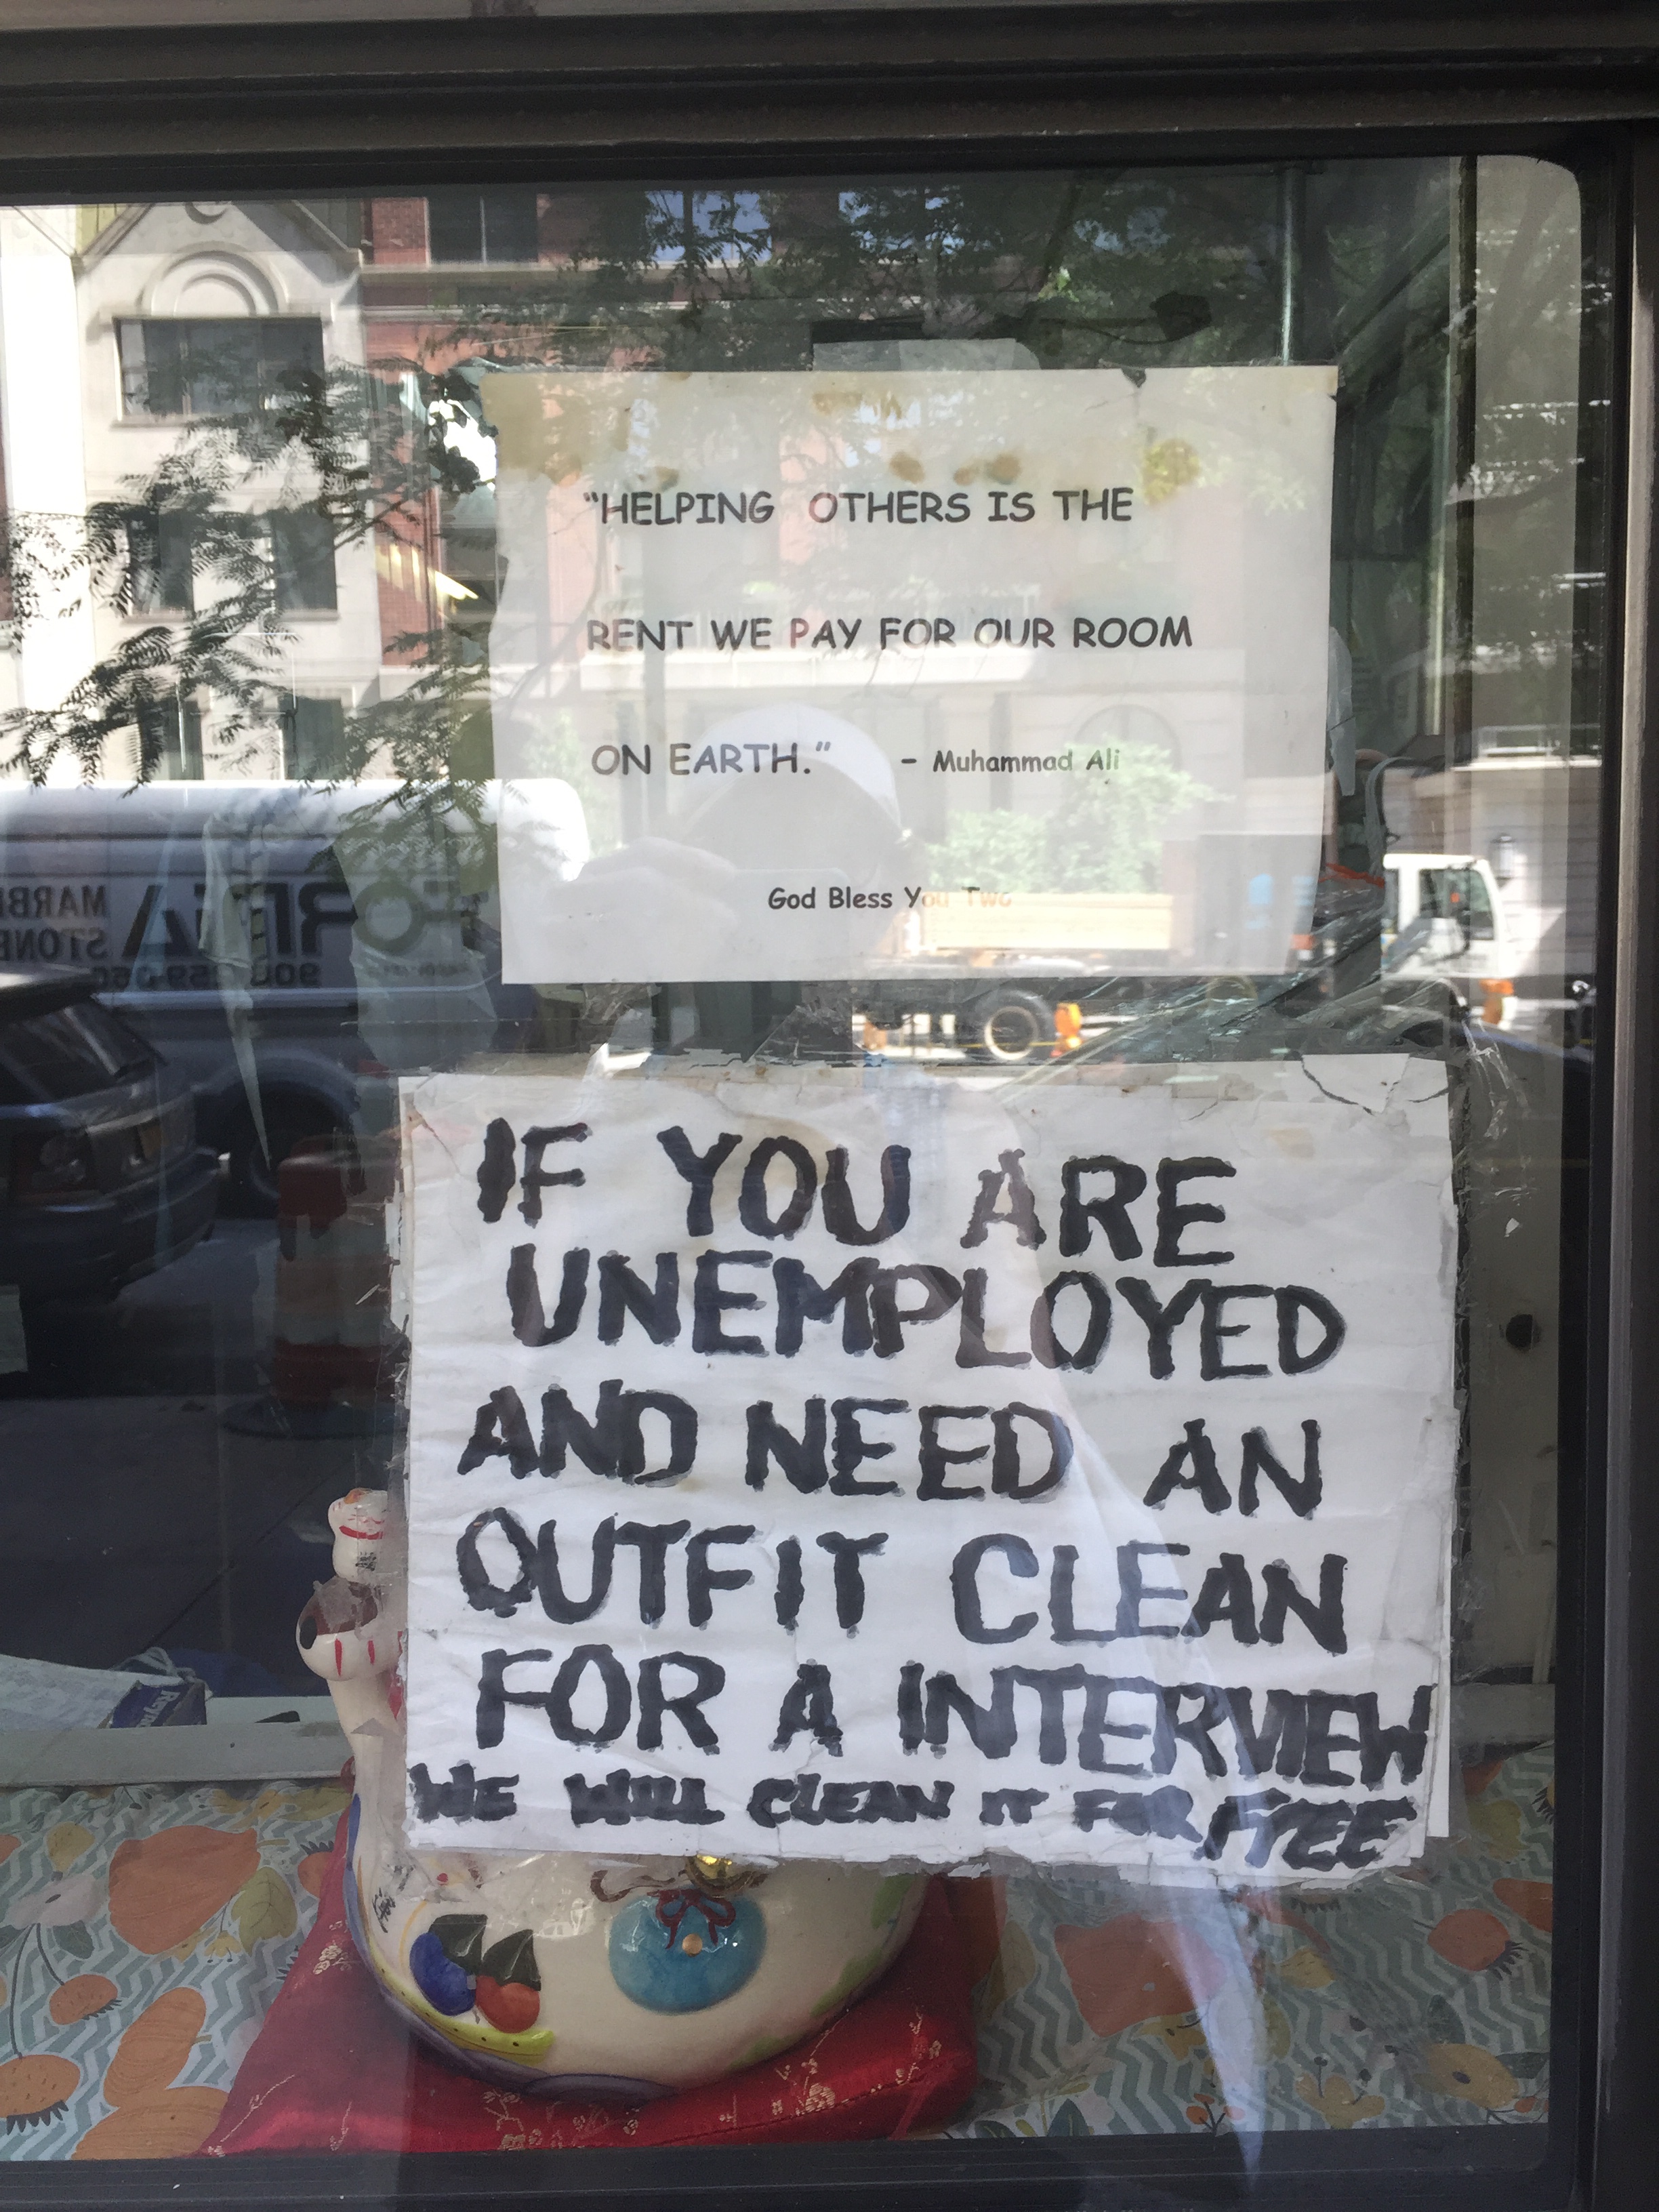 “HELPING OTHERS IS THE
RENT WE PAY FOR OUR ROOM
ON EARTH.” - Muhammad Ali
God Bless You Two
IF YOU ARE
UNEMPLOYED
AND NEED AN
OUTFIT CLEAN
FOR A INTERVIEW
WE WILL CLEAN IT FOR FREE